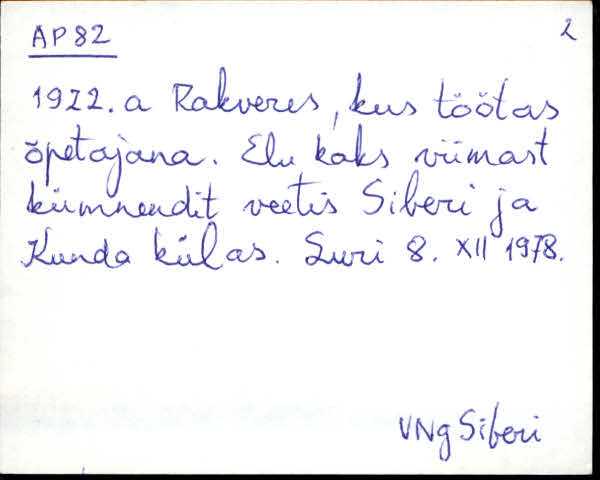 AP82
2
1922. a Rakveres, kus töötas
õpetajana. Elu kaks viimast
kümnendit veetis Siberi ja
Kunda külas. Suri 8. XII 1978.
VNg Siberi